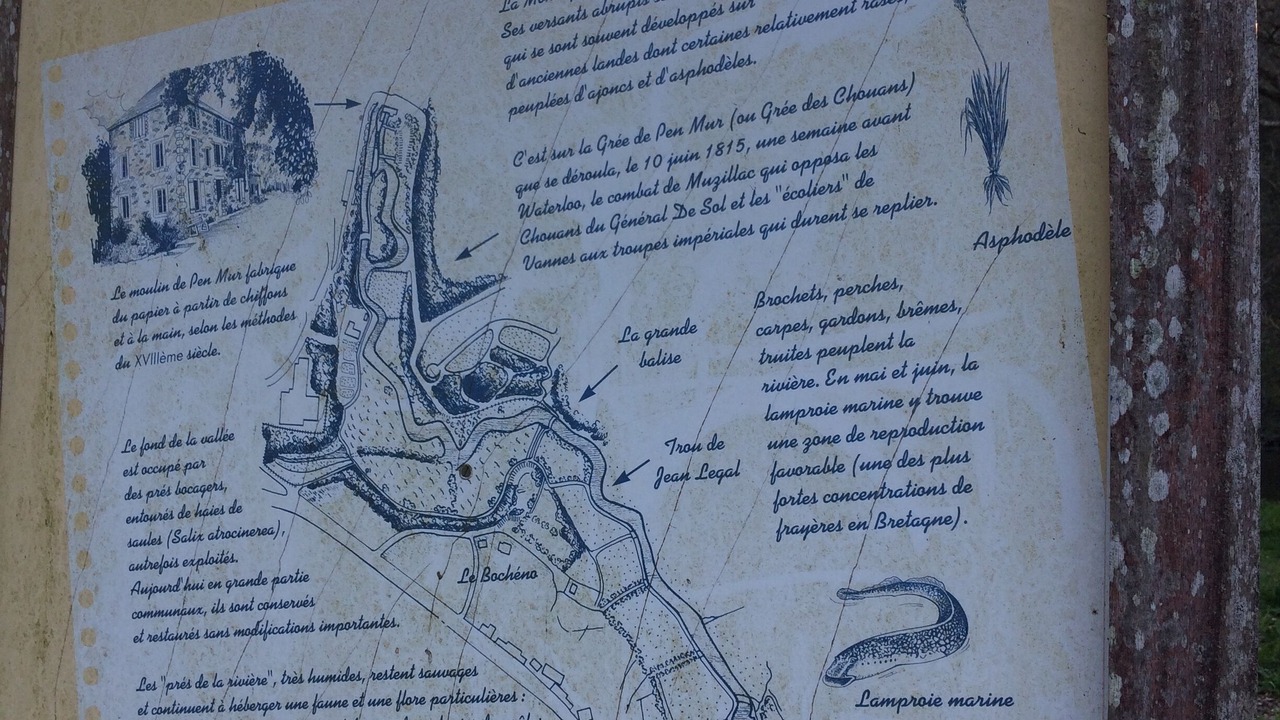 Ses versants abrupts
qui se sont souvent développés sur
d'anciennes landes dont certaines relativement rases,
peuplées d'ajoncs et d'asphodèles.
C'est sur la Grée de Pen Mur (ou Grée des Chouans)
que se déroula, le 10 juin 1815, une semaine avant
Waterloo, le combat de Muzillac qui opposa les
Chouans du Général De Sol et les "écoliers" de
Vannes aux troupes impériales qui durent se replier.
Asphodèle
Le moulin de Pen Mur fabrique
du papier à partir de chiffons
et à la main, selon les méthodes
du XVIIIème siècle.
La grande
balise
Trou de
Jean Legal
Brochets, perches,
carpes, gardons, brêmes,
truites peuplent la
rivière. En mai et juin, la
lamproie marine y trouve
une zone de reproduction
favorable (une des plus
fortes concentrations de
frayères en Bretagne).
Le fond de la vallée
est occupé par
des prés bocagers,
entourés de haies de
saules (Salix atrocinerea),
autrefois exploités.
Aujourd'hui en grande partie
communaux, ils sont conservés
et restaurés sans modifications importantes.
Le Bochéno
Les "prés de la rivière", très humides, restent sauvages
et continuent à héberger une faune et une flore particulières :
Lamproie marine